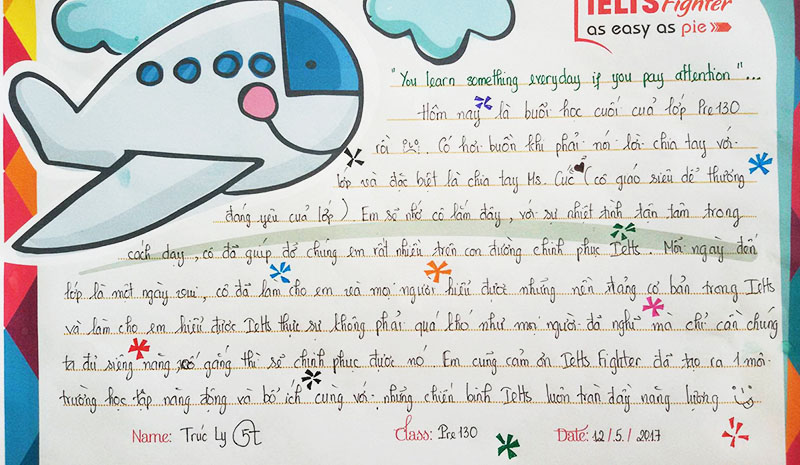 IELTS Fighter
as easy as pie
"You learn something everyday if you pay attention"...
Hôm nay là buổi học cuối của lớp Pre130
rồi. Có hơi buồn khi phải nói lời chia tay với
lớp và đặc biệt là chia tay Ms. Cúc (cô giáo siêu dễ thương
đáng yêu của lớp). Em sẽ nhớ cô lắm đây, với sự nhiệt tình tận tâm trong
cách dạy, cô đã giúp đỡ chúng em rất nhiều trên con đường chinh phục Ielts. Mỗi ngày đến
lớp là một ngày vui, cô đã làm cho em và mọi người hiểu được những nền tảng cơ bản trong Ielts
và làm cho em hiểu được Ielts thực sự không phải quá khó như mọi người đã nghĩ mà chỉ cần chúng
ta đủ siêng năng, cố gắng thì sẽ chinh phục được nó. Em cũng cảm ơn Ielts Fighter đã tạo ra 1 môi
trường học tập năng động và bổ ích cùng với những chiến binh Ielts luôn tràn đầy năng lượng
Name: Trúc Ly Class: Pre130 Date: 12/5/2017